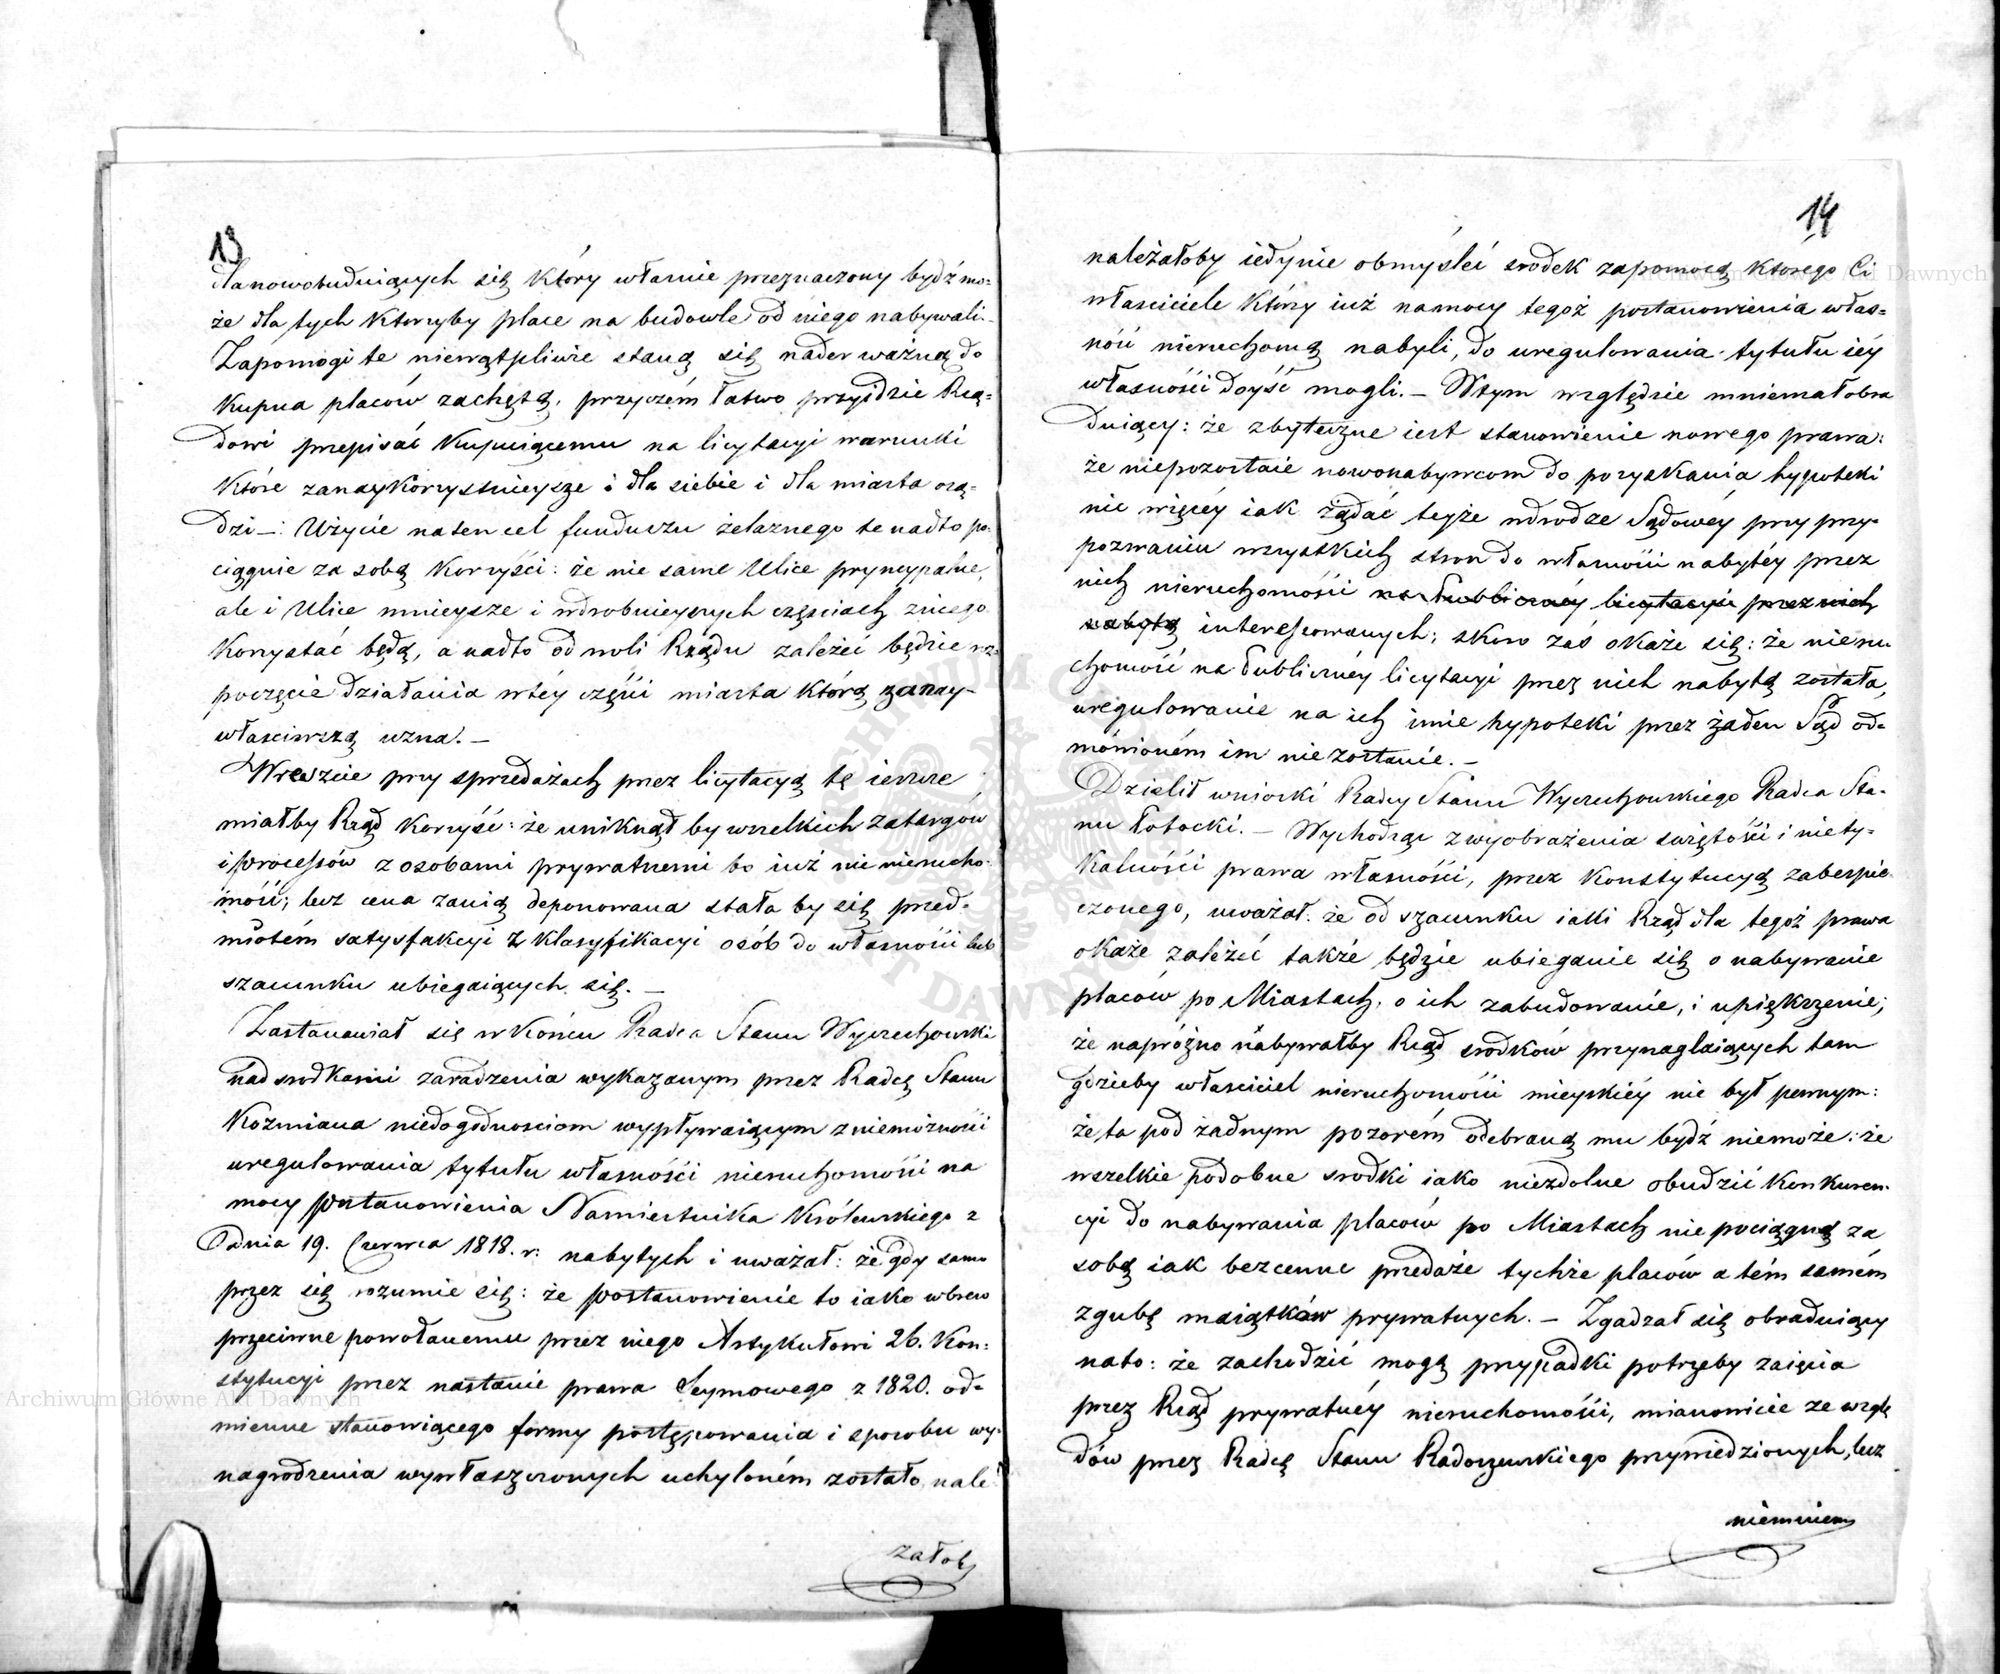 13
dla nowobuduiących się który właśnie przeznaczony bydź mo-
że dla tych ktorzyby place na budowle od niego nabywali.
Zapomogi te niewątpliwie staną się nader ważną do
kupna placów zachętą, przyczém łatwo przyidzie Rzą-
dowi przepisać kupuiącemu na licytacyi warunki
które zanaykorzystnieysze i dla siebie i dla miasta osą-
dzi —: Użycie na ten cel funduszu żelaznego te nadto po-
ciągnie za sobą korzyści: że nie same Ulice pryncypalne,
ale i Ulice mnieysze i wdrobnieyszych częściach z niego
korzystać będą, a nadto od woli Rządu zależeć będzie roz-
poczęcie działania wtéy części miasta którą zanay-
właściwszą uzna. —
Wreszcie przy sprzedażach przez licytacyą tę ieszcze
miałby Rząd korzyść: że uniknął by wszelkich zatargów
i processów z osobami prywatnemi bo iuż nie nierucho-
mość; lecz cena zanią deponowana stała by się przed-
miotém satysfakcyi z klasyfikacyi osób do własności lub
szacunku ubiegaiących się. —
Zastanawiał się w końcu Radca Stanu Wyczechowski
nad srodkami zaradzenia wykazanym przez Radcę Stanu
Koźmiana niedogodnosciom wypływaiącym z niemożności
uregulowania tytułu własności nieruchomości na
mocy postanowienia Namiestnika Królewskiego z
Dnia 19. Czerwca 1818. r. nabytych i uważał: że gdy samo
przez się rozumie się: że postanowienie to iako wbrew
przeciwne powołanemu przez niego Artykułowi 26. Kon-
stytucyi przez nastanie prawa Seymowego z 1820. od-
mienne stanowiącego formy postępowania i sposobu wy-
nagrodzenia wywłaszczonych uchyloném zostało, nale
załob
14
należałoby iedynie obmyśleć srodek zapomocą ktorego Ci
właściciele którzy iuż namocy tegoż postanowienia włas-
ność nieruchomą nabyli, do uregulowania tytułu iéy
własności doyść mogli. — Wtym względzie mniemał obra
duiący: że zbyteczne iest stanowienie nowego prawa:
że niepozostaie nowonabywcom do pozyskania hypoteki
nic więcéy iak żądać teyże wdrodze Sądowéy przy przy-
pozwaniu wszystkich stron do własności nabytéy przez
nich nieruchomości na Publiczney licytacyi przez nich
nabytą interessowanych; skoro zaś okaże się: że nieru-
chomość na Publicznéy licytacyi przez nich nabytą została,
uregulowanie na ich imie hypoteki przez żaden Sąd od-
mówioném im niezostanie. —
Dzielił wnioski Radcy Stanu Wyczechowskiego Radca Sta-
nu Potocki. — Wychodząc z wyobrażenia świętości i niety-
kalności prawa własności, przez Konstytucyą zabespie-
czonego, uważał: że od szacunku iaki Rząd dla tegoż prawa
okaże zależeć także będzie ubieganie się o nabywanie
placów po Miastach, o ich zabudowanie, i upiększenie;
że napróżno nabywałby Rząd srodków przynaglaiących tam
gdzieby właściciel nieruchomości mieyskiéy nie był pewnym:
że ta pod żadnym pozorém odebraną mu bydź niemoże: że
wszelkie podobne srodki iako niezdolne obudzić konkuren-
cyi do nabywania placów po Miastach nie pociągną za
sobą iak bezcenne przedaże tychże placów a tém samém
zgubę maiątków prywatnych. — Zgadzał się obraduiący
nato: że zachodzić mogą przypadki potrzeby zaięcia
przez Rząd prywatnéy nieruchomości, mianowicie ze wzglę
dów przez Radcę Stanu Radoszewskiego przywiedzionych, lecz
niemniem
Archiwum Główne Akt Dawnych